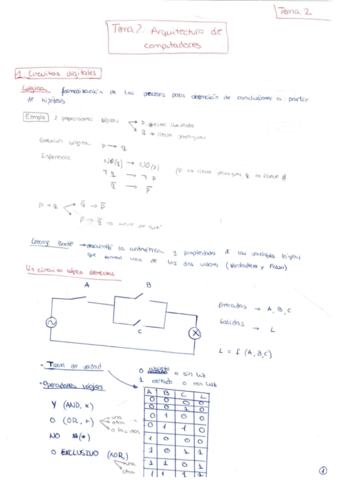 Tema 2
Tema 2. Arquitectura de
computadores
1 Circuitos digitales
Lógica: formalización de los procesos para obtención de conclusiones a partir
de hipótesis
Ejemplo 2 proposiciones lógicas → P →
→ q →
Relación lógica P → q
NO(q) → NO(p)
¬q → ¬p
q̄ → p̄
P → q
q̄ → p̄
George Boole → desarrolló la aritmética y propiedades de las variables lógicas
que toman uno de los dos valores (Verdadero y Falso)
Un circuito lógico
A
B
C
Entradas → A, B, C
Salidas → L
L = f (A, B, C)
• Tabla de verdad
0 abierto o sin luz
1 cerrado o con luz
• Operadores lógicos
Y (AND, *)
O (OR, +) → una
otra
NO
O EXCLUSIVO (XOR) → una
otra
A B C L
0 0 0 0
0 0 1 0
0 1 0 0
0 1 1 0
1 0 0 0
1 0 1 1
1 1 0 1
1 1 1 1
1